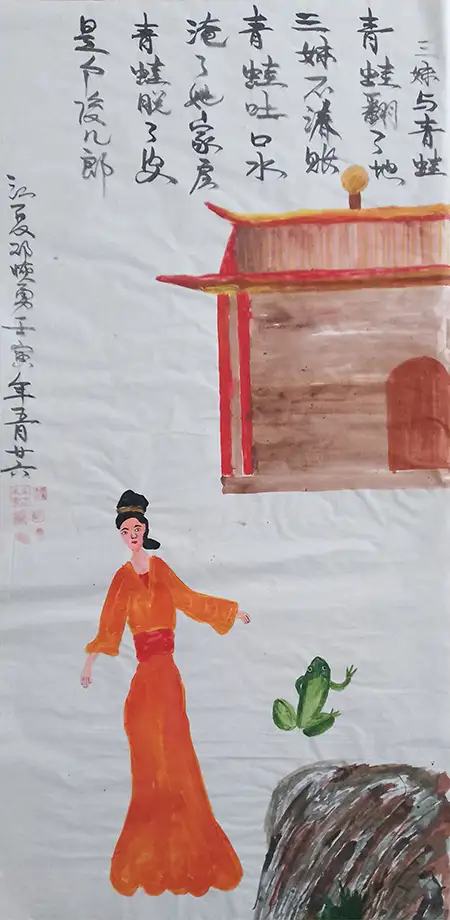 三妹与青蛙
青蛙翻了地
三妹不湊账
青蛙吐口水
淹了她家房
青蛙脱了皮
是个俊儿郎
江夏邓映勇壬寅年五月廿六